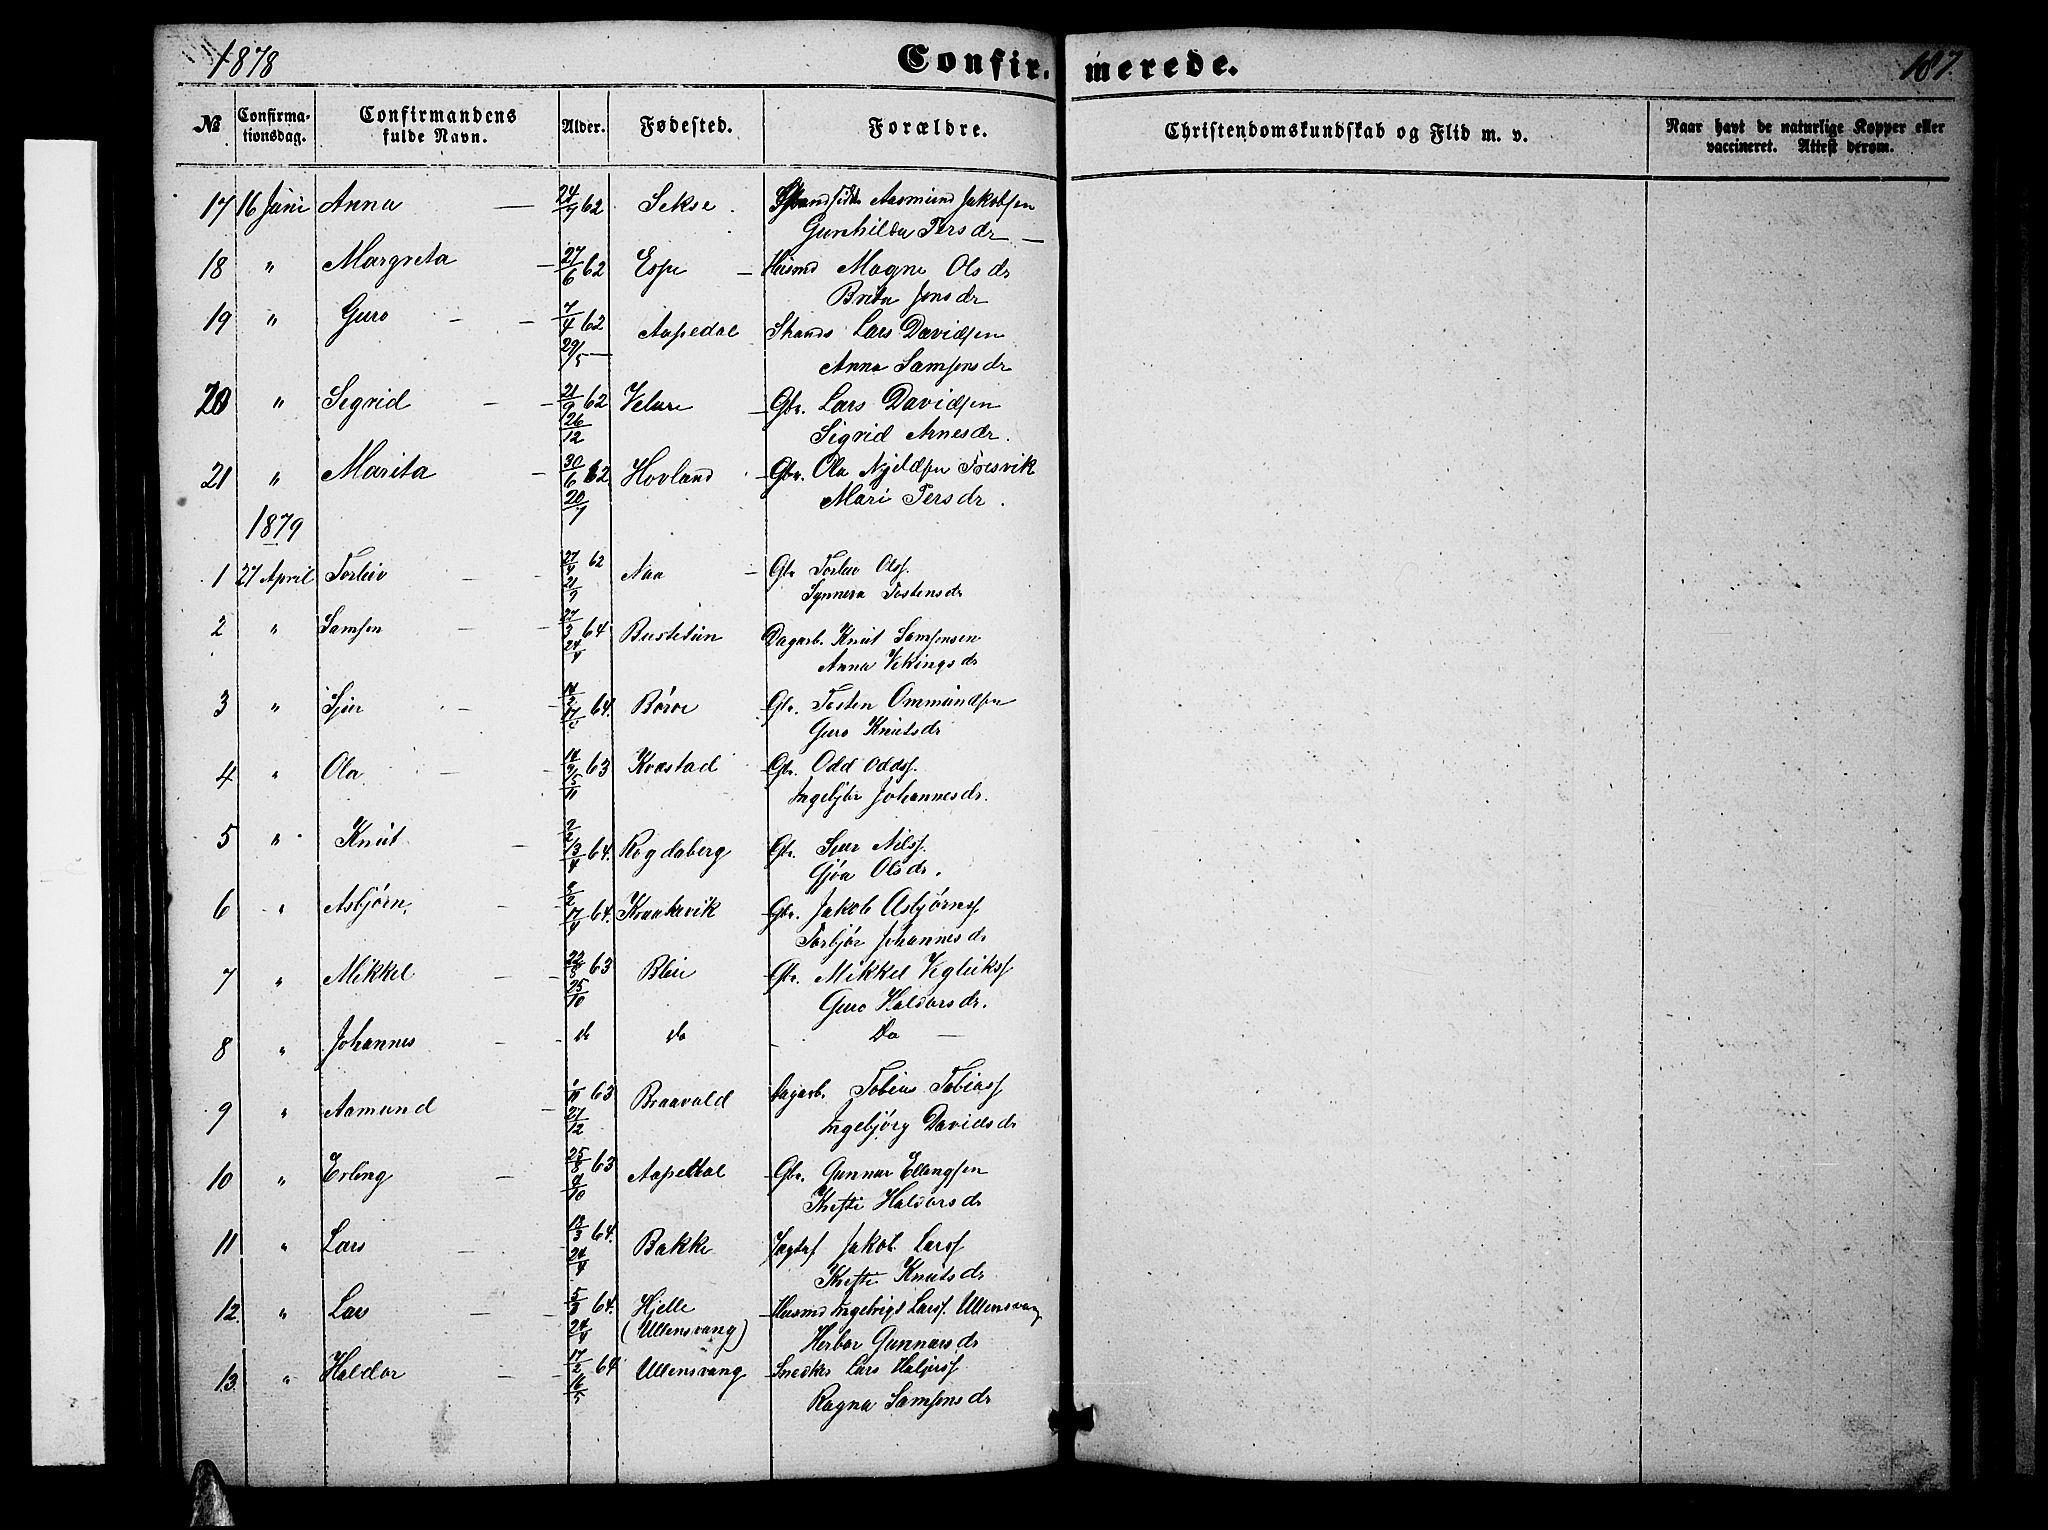 1878
Confir-
merede.
107.
№
Confirma-
tionsdag.
Confirmandens
fulde Navn.
Alder.
Fødested.
Forældre.
Christendomskundskab og Flid m. v.
Naar havt de naturlige Kopper eller
vaccineret. Attest derom.
17 16 Juni Anna — 24/9 62 Sekse. Aasmund Jakobsen
Gunhilda Persdr —
18 " Margreta — 27/6 62 Espe — Husmd Magne Olsdr
Brita Jonsdr
19 " Guro — 7/4 62 Aapedal Strands Lars Davidsen
29/5 — Anna Samsonsdr
20 " Sigrid — 21/9 62 Velure — Gbr. Lars Davidsen
26/12 Sigrid Arnesdr.
21 " Marita — 30/6 62 Hovland — Gbr. Ola Tresvik
20/7 Mari Persdr.
1879
1 27 April Torleiv — 27/4 62 Naa — Gbr Torleiv Olss.
21/9 Synneva Tostensdr
2 " Samsen — 27/3 64 Bustetun Dagarb. Knut Samsonsen
24/4 Anna Vikingsdr
3 " Sjur — 64. Børve Gbr. Tosten Ommundsen
Guro Knutsdr
4 " Ola — 63 Kvestad Gbr. Odd Odds.
Ingebjør Johannesdr.
5 " Knut — 2/2 64. Rogdaberg Gbr. Sjur Nilss.
13/4 Gjøa Olsdr.
6 " Asbjørn. — 64. Kraakevik Gbr. Jakob Asbjørnss
17/4 Torbjør Johannesdr
7 " Mikkel — 22/8 63 Bleie Gbr. Mikkel Vigleikss
25/10 Guro Haldorsdr.
8 " Johannes — do do Do —
9 " Aamund — 63 Braavold Dagarb. Tobias Tobiass
27/12 Ingebjørg Davidsdr
10 " Erling — 25/8 63 Aapedal — Gbr. Gunnar Ellingsen
4/10 Kristi Haldorsdr
11 " Lars — 64. Bakke Jakob Larss
24/4 Kristi Knutsdr
12. " Lars — 5/3 64. Hjelle — Husmd Ingebrigt Larss. Ullensvang
24/4 (Ullensvang) Herbor Gunnarsdr
13. " Haldor — 17/2 64 Ullensvang Snedker Lars
16/5 Ragna Samsonsdr